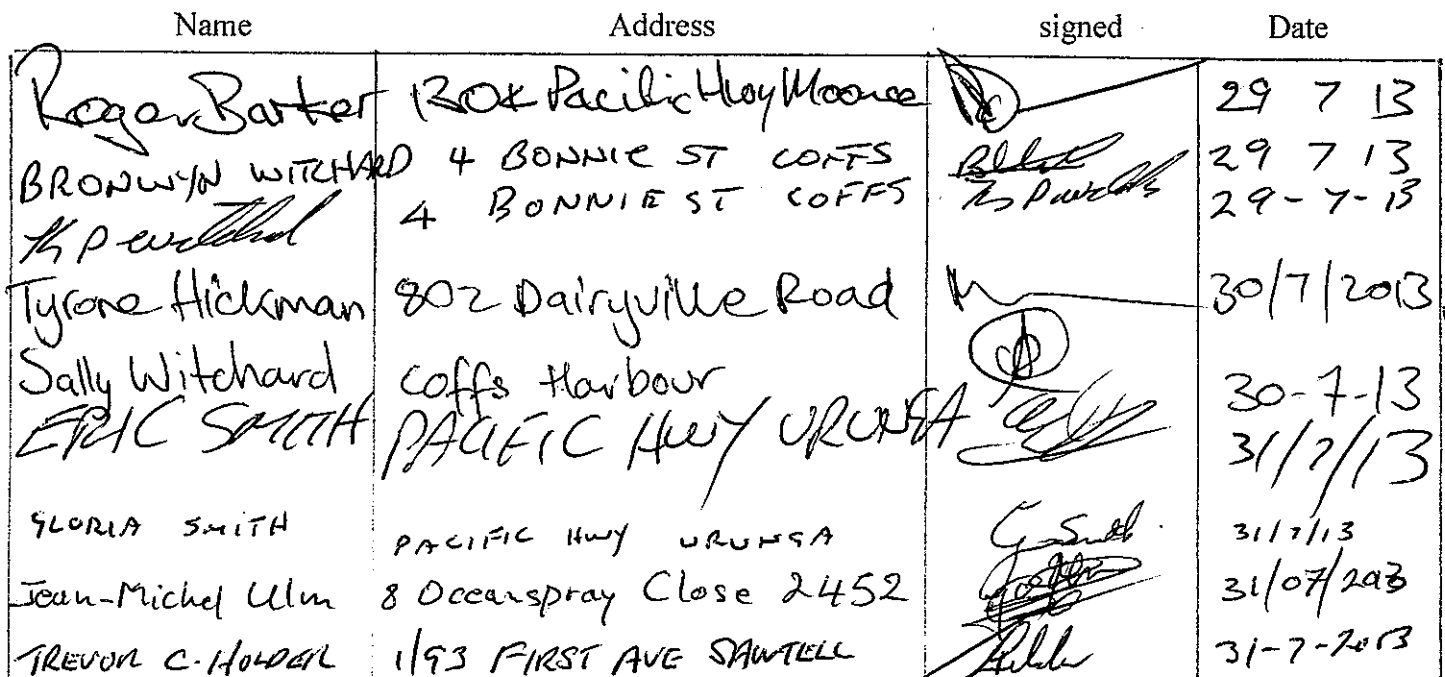 Name Address signed Date
Roger Barker Pacific Hwy Moonee 29 7 13
BRONWYN WITCHARD 4 BONNIE ST COFFS 29 7 13
4 BONNIE ST COFFS 29-7-13
Tyrone Hickman 802 Dairyville Road 30/7/2013
Sally Witchard Coffs Harbour 30-7-13
ERIC SMITH PACIFIC HWY URUNGA 31/7/13
GLORIA SMITH PACIFIC HWY URUNGA G Smith 31/7/13
Jean-Michel Ulm 8 Oceanspray Close 2452 31/07/2013
TREVOR C. HOLDER 1/93 FIRST AVE SAWTELL 31-7-2013